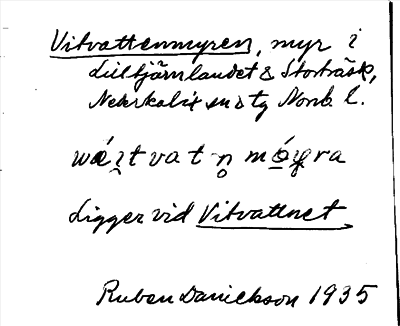 Vitvattenmyren, myr i
Lilltjärnlandet & Storträsk,
Nederkalix sn o tg Norrb. l.
Ligger vid Vitvattnet
Ruben Danielsson 1935